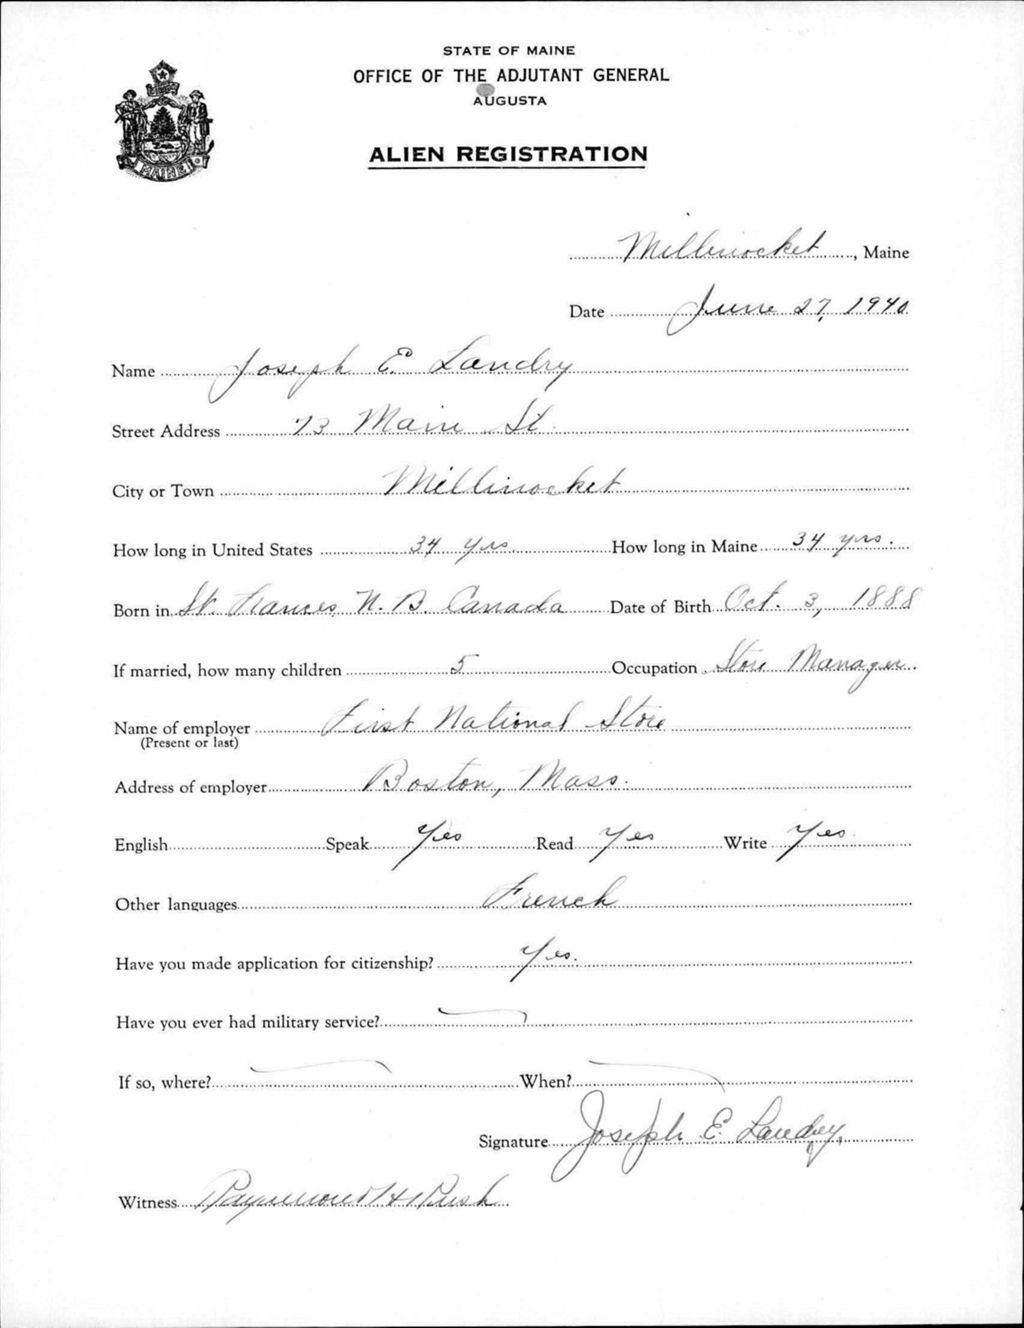 STATE OF MAINE
OFFICE OF THE ADJUTANT GENERAL
AUGUSTA
ALIEN REGISTRATION
MAINE
Millinocket, Maine
Date June 27, 1940
Name Joseph E. Landry
Street Address 73 Main St.
City or Town Millinocket
How long in United States 34 yrs. How long in Maine 34 yrs.
Born in St. Frances N.B. Canada Date of Birth Oct. 3, 1888
If married, how many children 5 Occupation Store Manager
Name of employer First National Store
(Present or last)
Address of employer Boston, Mass.
English Speak Yes Read Yes Write Yes
Other languages French
Have you made application for citizenship? Yes.
Have you ever had military service?
If so, where? When?
Signature Joseph E. Landry
Witness Raymond H Rush